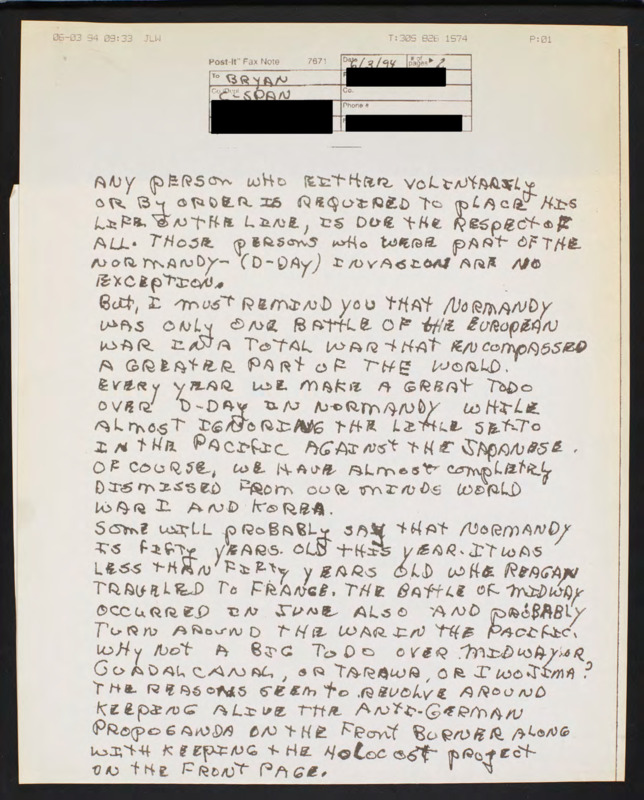 06-03 94 09:33 JLW T:305 826 1574 P:01
Post-it™ Fax Note 7671 Date 6/3/94 # of pages ▶ 2
To BRYAN
C-SPAN Co.
Phone #
ANY PERSON WHO EITHER VOLINTARILY
OR BY ORDER IS REQUIRED TO PLACE HIS
LIFE ON THE LINE, IS DUE THE RESPECT OF
ALL. THOSE PERSONS WHO WERE PART OF THE
NORMANDY- (D-DAY) INVASION ARE NO
EXCEPTION.
But, I MUST REMIND YOU THAT NORMANDY
WAS ONLY ONE BATTLE OF THE EUROPEAN
WAR IN A TOTAL WAR THAT ENCOMPASSED
A GREATER PART OF THE WORLD.
EVERY YEAR WE MAKE A GREAT TODO
OVER D-DAY IN NORMANDY WHILE
ALMOST IGNORING THE LITTLE SET.TO
IN THE PACIFIC AGAINST THE JAPANESE.
OF COURSE, WE HAVE ALMOST COMPLETELY
DISMISSED FROM OUR MINDS WORLD
WAR I AND KOREA.
SOME WILL PROBABLY SAY THAT NORMANDY
IS FIFTY YEARS OLD THIS YEAR. IT WAS
LESS THAN FIFTY YEARS OLD WHE REAGAN
TRAVELED TO FRANCE. THE BATTLE OF MIDWAY
OCCURRED IN JUNE ALSO AND PROBABLY
TURN AROUND THE WAR IN THE PACIFIC.
WHY NOT A BIG TODO OVER MIDWAY, OR
GUADALCANAL, OR TARAWA, OR IWOJIMA?
THE REASONS SEEM TO REVOLVE AROUND
KEEPING ALIVE THE ANTI-GERMAN
PROPOGANDA ON THE FRONT BURNER ALONG
WITH KEEPING THE HOLOCOST PROJECT
ON THE FRONT PAGE.